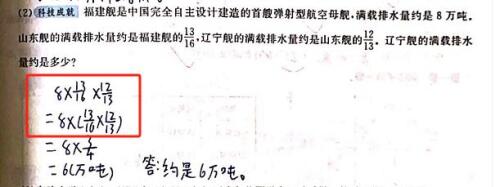 (2) 科技成就 福建舰是中国完全自主设计建造的首艘弹射型航空母舰,满载排水量约是 8 万吨。
山东舰的满载排水量约是福建舰的13/16,辽宁舰的满载排水量约是山东舰的12/13。辽宁舰的满载排水
量约是多少?
8×13/16×12/13
=8×(13/16×12/13)
=8×3/4
=6(万吨) 答:约是6万吨。